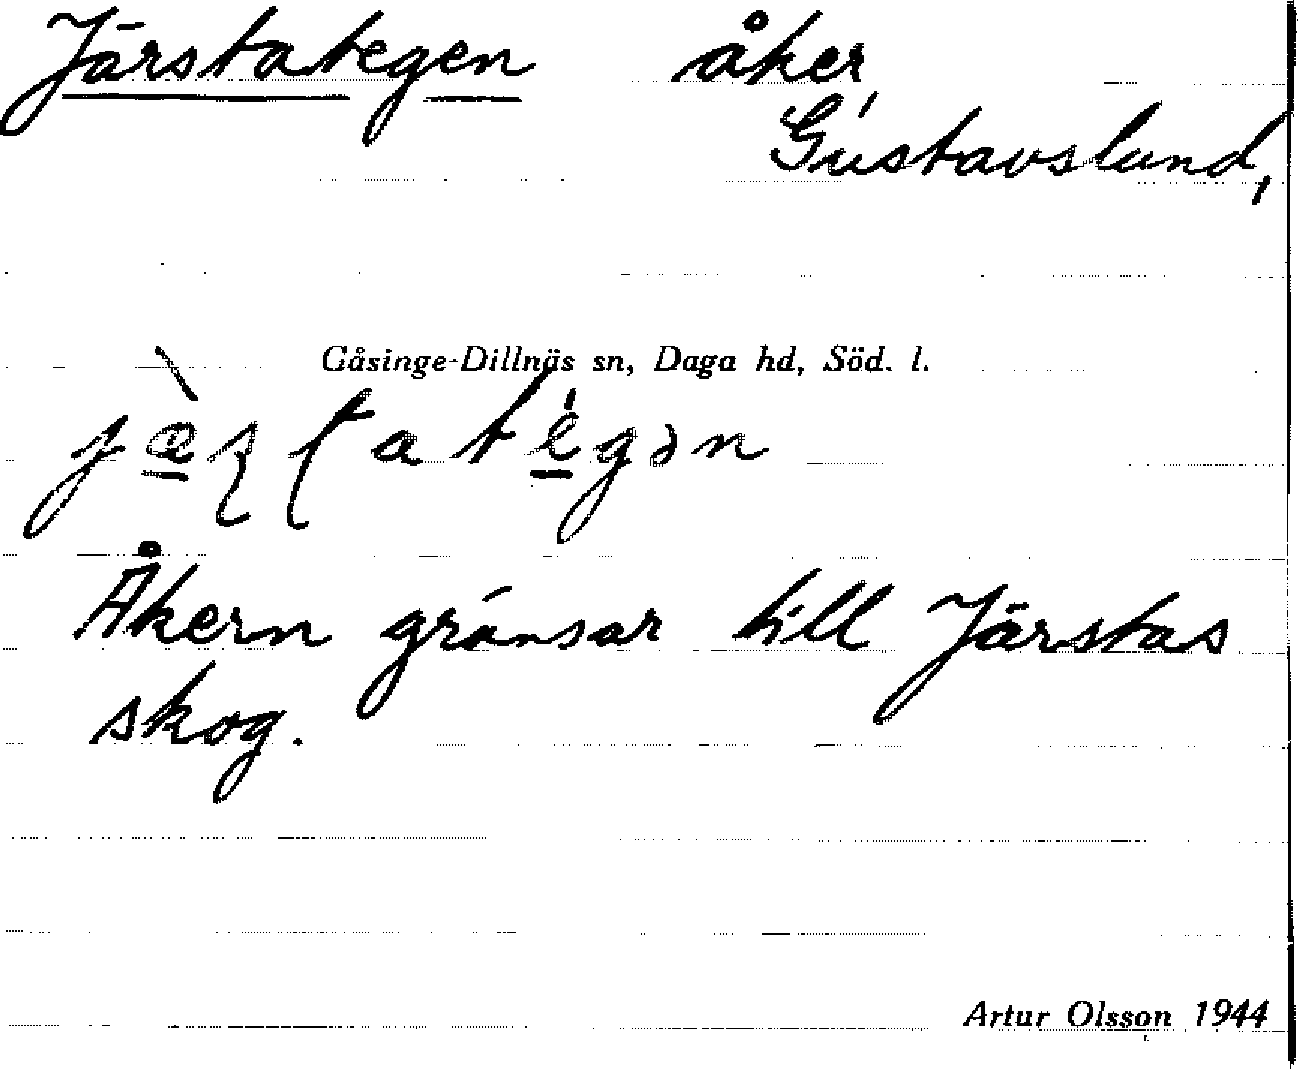 Järstategen åker,
Gustavslund,
Gåsinge-Dillnäs sn, Daga hd, Söd. l.
Åkern gränsar till Järstas
skog.
Artur Olsson 1944